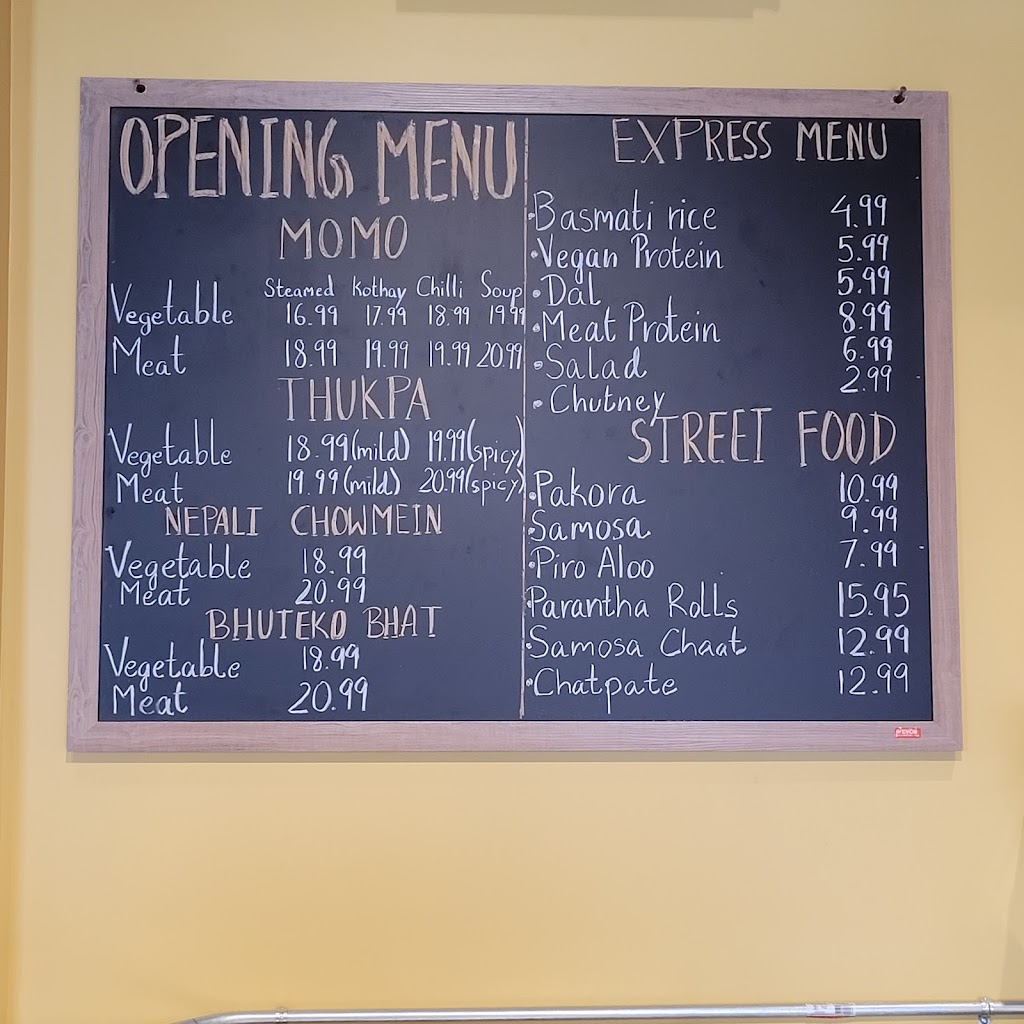 OPENING MENU
MOMO
Steamed Kothay Chilli Soup
Vegetable 16.99 17.99 18.99 19.99
Meat 18.99 19.99 19.99 20.99
THUKPA
Vegetable 18.99(mild) 19.99(spicy)
Meat 19.99(mild) 20.99(spicy)
NEPALI CHOWMEIN
Vegetable 18.99
Meat 20.99
BHUTEKO BHAT
Vegetable 18.99
Meat 20.99
EXPRESS MENU
• Basmati rice 4.99
• Vegan Protein 5.99
• Dal 5.99
• Meat Protein 8.99
• Salad 6.99
• Chutney 2.99
STREET FOOD
• Pakora 10.99
• Samosa 9.99
• Piro Aloo 7.99
• Parantha Rolls 15.95
• Samosa Chaat 12.99
• Chatpate 12.99